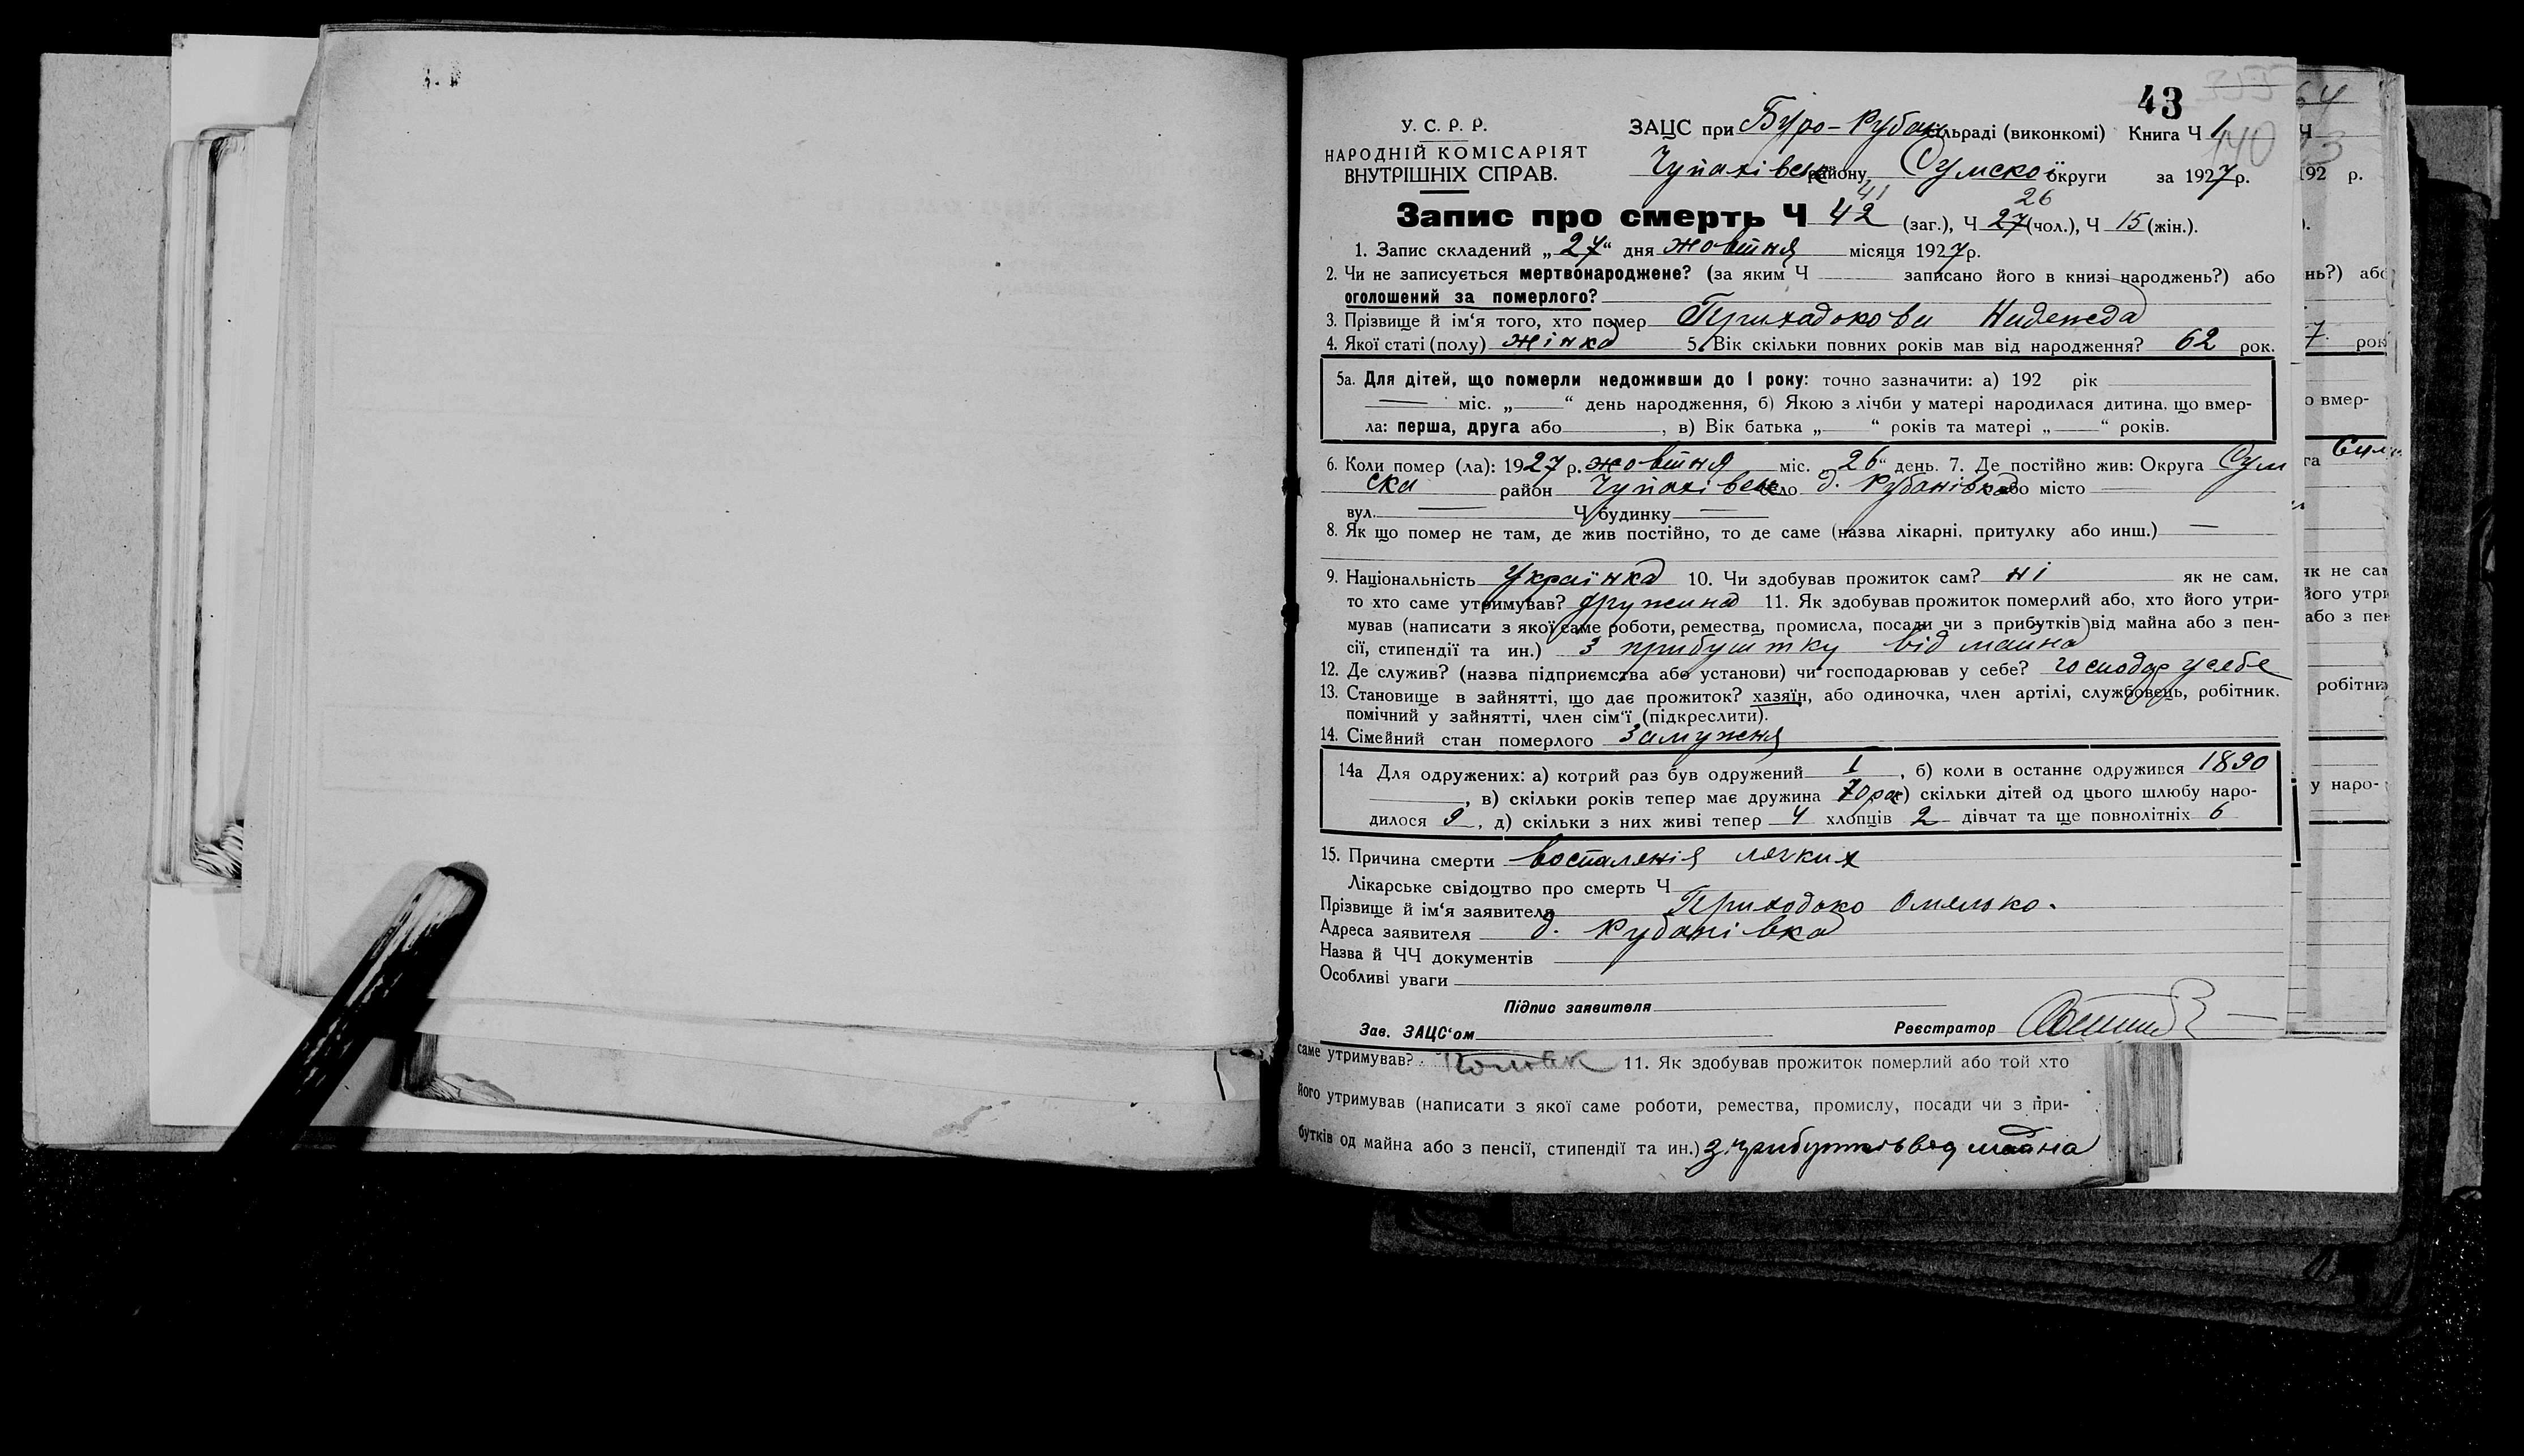 43
У. С. Р. Р.
НАРОДНІЙ КОМІСАРІЯТ
ВНУТРІШНІХ СПРАВ.
ЗАЦС при Буро-Рубан сільраді (виконкомі) Книга Ч 1
140
Чупахівськ району Сумської округи за 1927 р.
41 26
Запис про смерть Ч 42 (заг.), Ч 27 (чол.), Ч 15 (жін.).
1. Запис складений „27“ дня жовтня місяця 1927 р.
2. Чи не записується мертвонароджене? (за яким Ч записано його в книзі народжень?) або
оголошений за померлого?
3. Прізвище й ім‘я того, хто помер Приходокова Надежда
4. Якої статі (полу) жінка 5. Вік скільки повних років мав від народження? 62 рок.
5а. Для дітей, що померли недоживши до 1 року: точно зазначити: а) 192 рік
міс. „ “ день народження, б) Якою з лічби у матері народилася дитина. що вмер-
ла: перша, друга або , в) Вік батька „ “ років та матері „ “ років.
6. Коли помер (ла): 1927 р. жовтня міс. „26“ день. 7. Де постійно жив: Округа Сум
ска район Чупахівськ село д. Рубанівка або місто
вул. Ч будинку
8. Як що помер не там, де жив постійно, то де саме (назва лікарні, притулку або инш.)
9. Національність Українка 10. Чи здобував прожиток сам? ні як не сам,
то хто саме утримував? дружина 11. Як здобував прожиток померлий або, хто його утри-
мував (написати з якої саме роботи, ремества, промисла, посади чи з прибутків від майна або з пен-
сії, стипендії та ин.) з прибутку від майна
12. Де служив? (назва підприємства або установи) чи господарював у себе? господар у себе
13. Становище в зайнятті, що дає прожиток? хазяїн, або одиночка, член артілі, службовець, робітник,
помічний у зайнятті, член сім‘ї (підкреслити).
14. Сімейний стан померлого Замужня
14а Для одружених: а) котрий раз був одружений 1 , б) коли в останнє одружився 1890
, в) скільки років тепер має дружина 70 рок г) скільки дітей од цього шлюбу наро-
дилося 9 , д) скільки з них живі тепер 4 хлопців 2 дівчат та ще повнолітніх 6
15. Причина смерти воспаленія легких
Лікарське свідоцтво про смерть Ч
Прізвище й ім‘я заявителя Приходоко Омелько.
Адреса заявителя д. Рубанівка
Назва й ЧЧ документів
Особливі уваги
Підпис заявителя
Зав. ЗАЦС‘ом Реєстратор
саме утримував? 11. Як здобував прожиток померлий або той хто
його утримував (написати з якої саме роботи, ремества, промислу, посади чи з при-
бутків од майна або з пенсії, стипендії та ин.) з прибутків вод майна
64
Ч
192 р.
нь?) або
7 рок
о вмер-
га Сум
як не сам
його утри
або з пен
робітни
у наро-